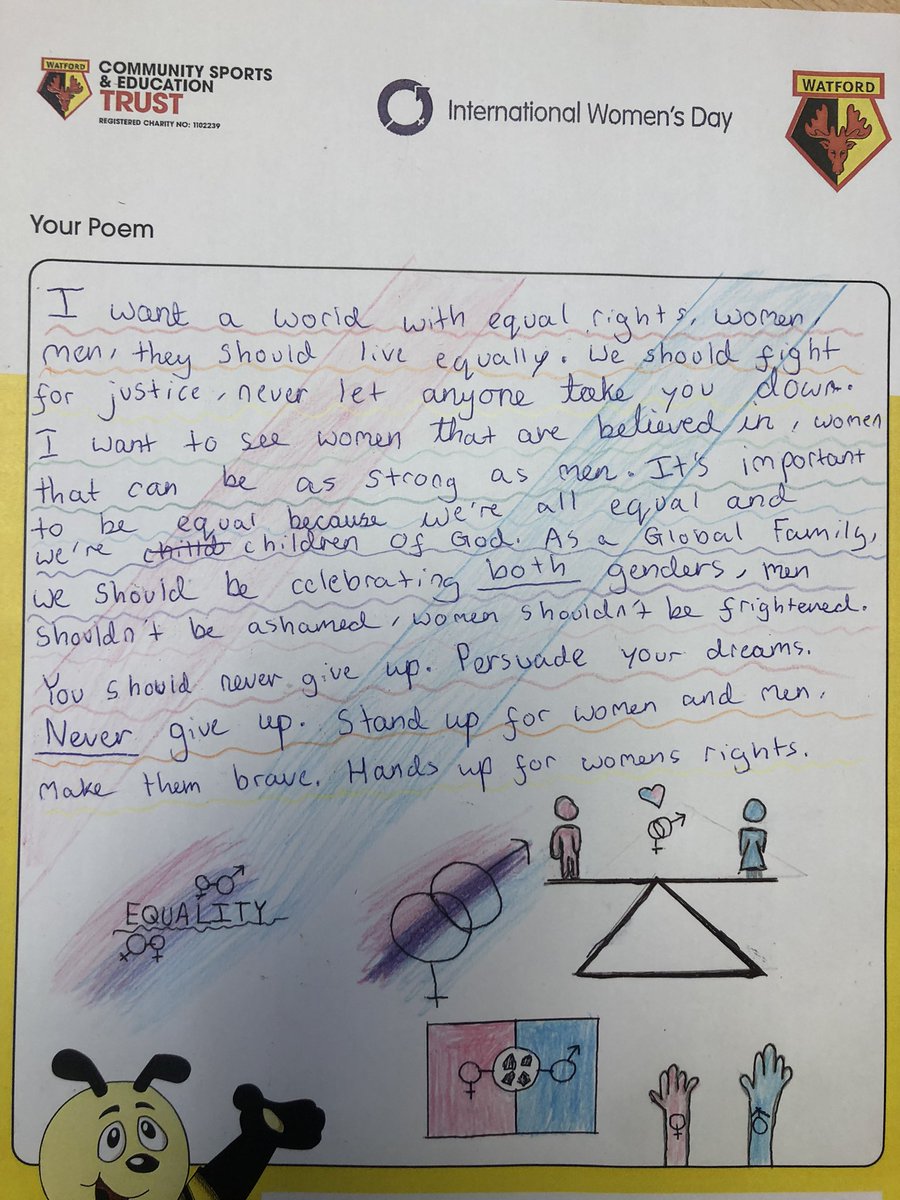 WATFORD
COMMUNITY SPORTS
& EDUCATION
TRUST
REGISTERED CHARITY NO: 1102239
International Women's Day
WATFORD
Your Poem
I want a world with equal rights, women
men, they should live equally. We should fight
for justice, never let anyone take you down.
I want to see women that are believed in, women
that can be as strong as men. It's important
to be equal because we're all equal and
we're child children of God. As a Global Family,
we should be celebrating both genders, men
shouldn't be ashamed, women shouldn't be frightened.
You should never give up. Persuade your dreams.
Never give up. Stand up for women and men,
make them brave. Hands up for womens rights.
EQUALITY